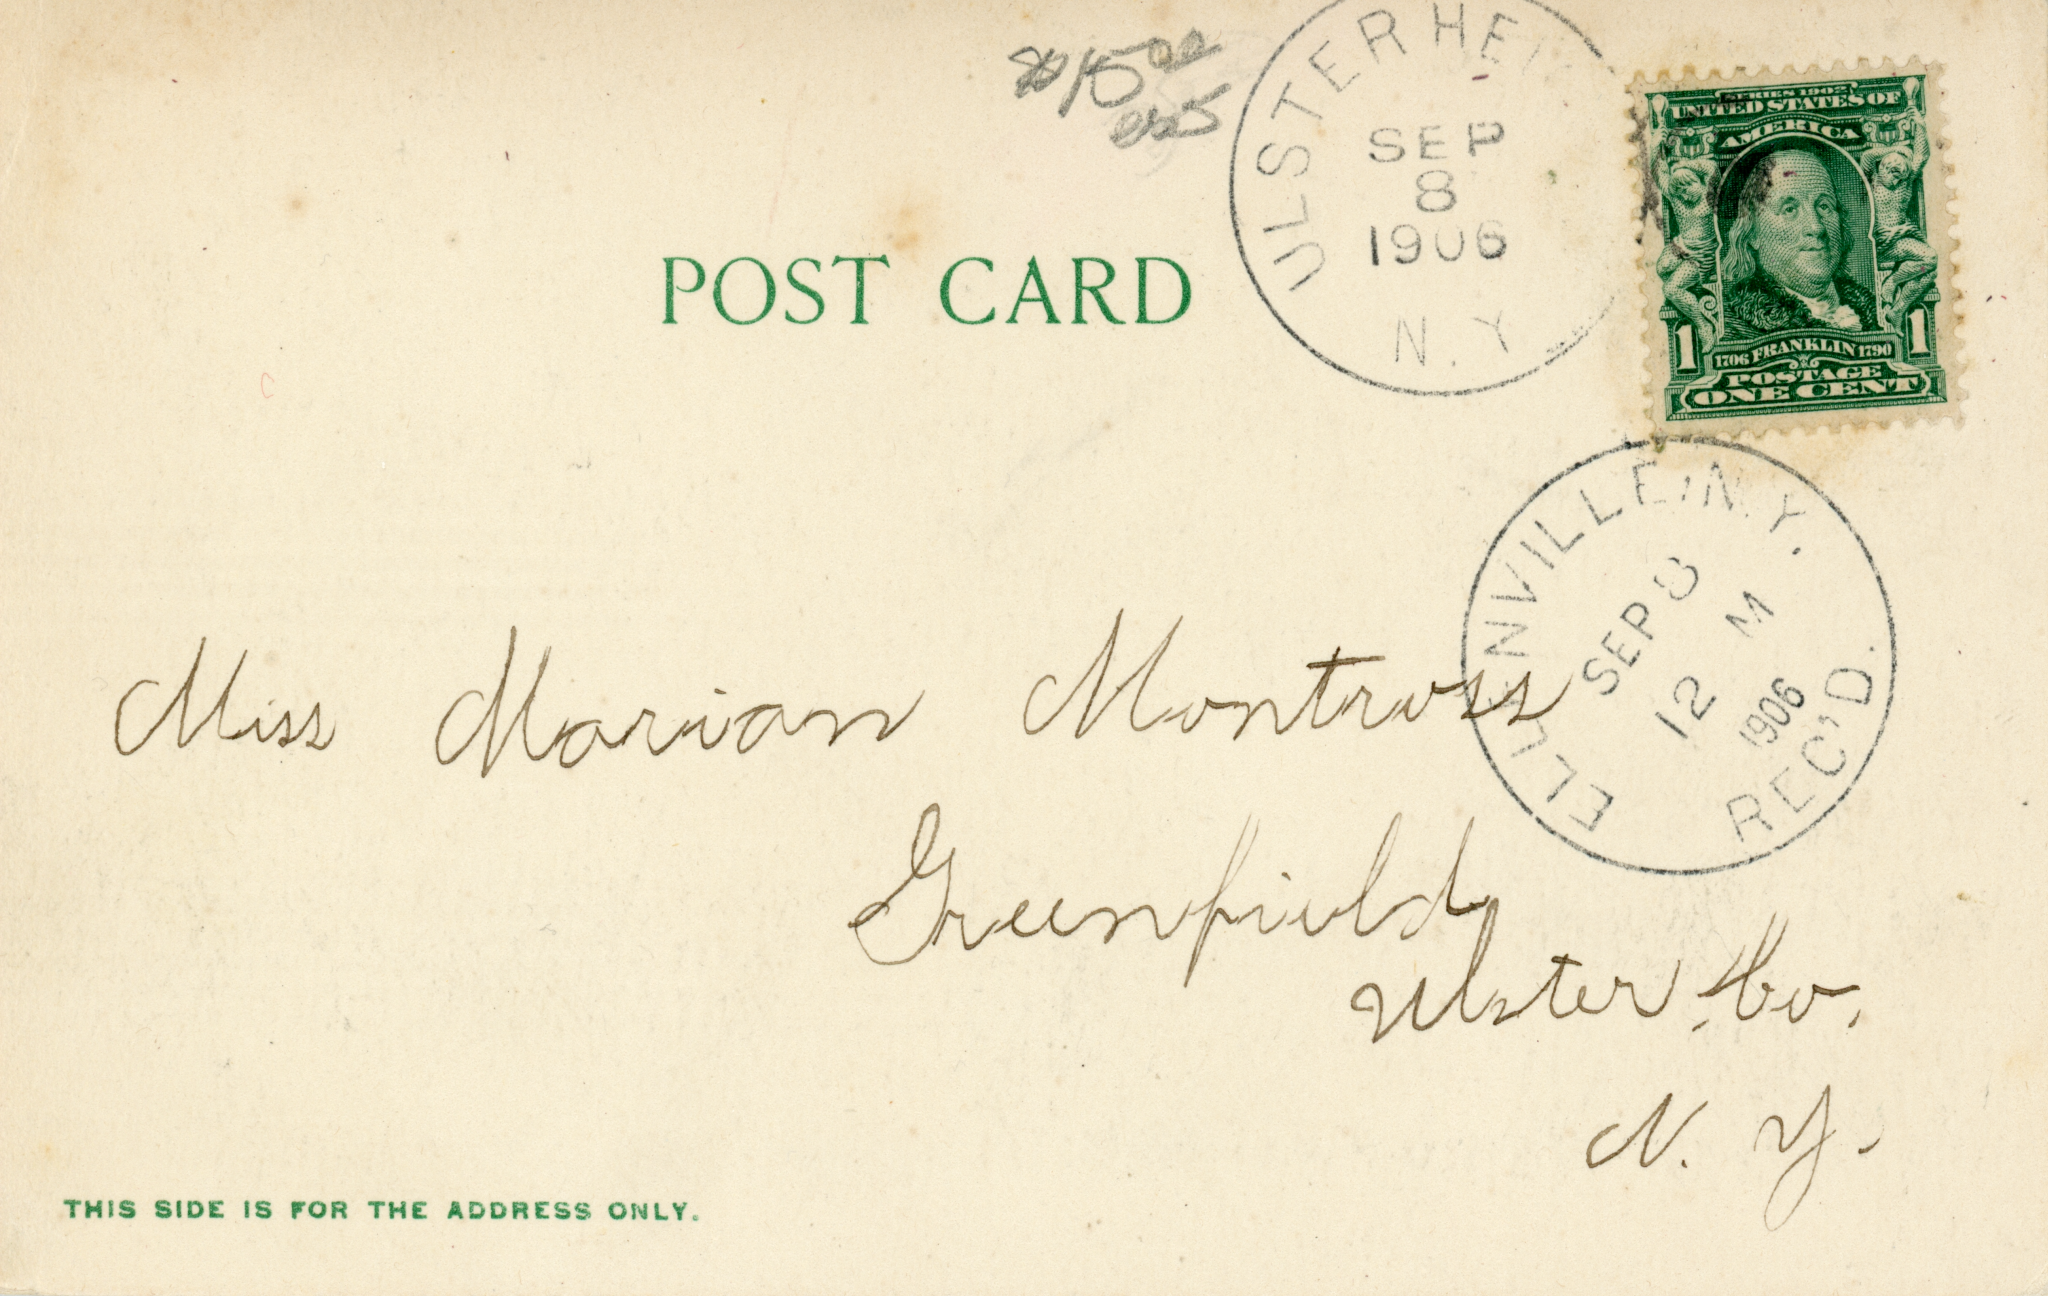 $15 00
ULSTER HEI
SEP
8
1906
N.Y.
SERIES 1902
UNITED STATES OF
AMERICA
1 1
1706 FRANKLIN 1790
POSTAGE
ONE CENT
POST CARD
ELLENVILLE, N.Y.
SEP 8
12 M
1906
REC'D.
Miss Marian Montross
Greenfield
Ulster Co.
N. Y.
THIS SIDE IS FOR THE ADDRESS ONLY.